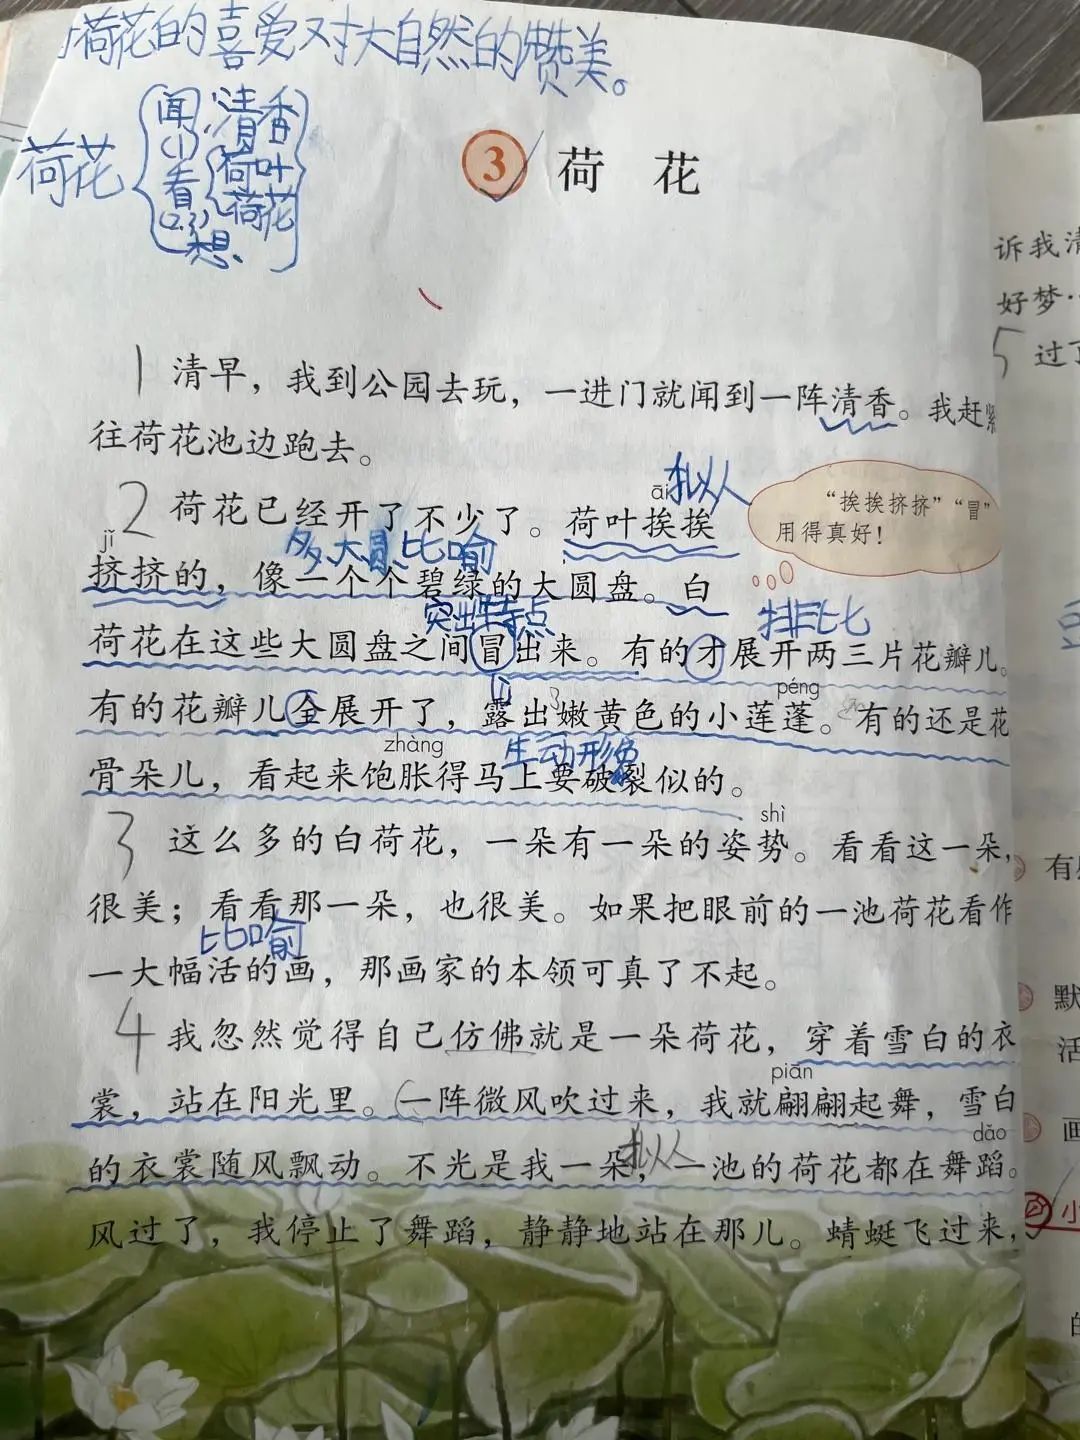 荷花的喜爱对大自然的赞美。
荷花
闻：清香
(1)
看 荷叶
(2.3) 荷花
想
3 荷花
1 清早，我到公园去玩，一进门就闻到一阵清香。我赶紧
往荷花池边跑去。
āi 拟人
2 荷花已经开了不少了。荷叶挨挨
“挨挨挤挤”“冒”
用得真好！
jǐ
多 大 圆 比喻
挤挤的，像一个个碧绿的大圆盘。白
突出特点 排比
荷花在这些大圆盘之间冒出来。有的才展开两三片花瓣儿。
péng
有的花瓣儿全展开了，露出嫩黄色的小莲蓬。有的还是花
zhàng 生动形象
骨朵儿，看起来饱胀得马上要破裂似的。
shì
3 这么多的白荷花，一朵有一朵的姿势。看看这一朵，
很美；看看那一朵，也很美。如果把眼前的一池荷花看作
比喻
一大幅活的画，那画家的本领可真了不起。
4 我忽然觉得自己仿佛就是一朵荷花，穿着雪白的衣
piān
裳，站在阳光里。一阵微风吹过来，我就翩翩起舞，雪白
dǎo
拟人
的衣裳随风飘动。不光是我一朵，一池的荷花都在舞蹈。
风过了，我停止了舞蹈，静静地站在那儿。蜻蜓飞过来，
诉我清
好梦…
5 过了
有
默
活
画
小
的